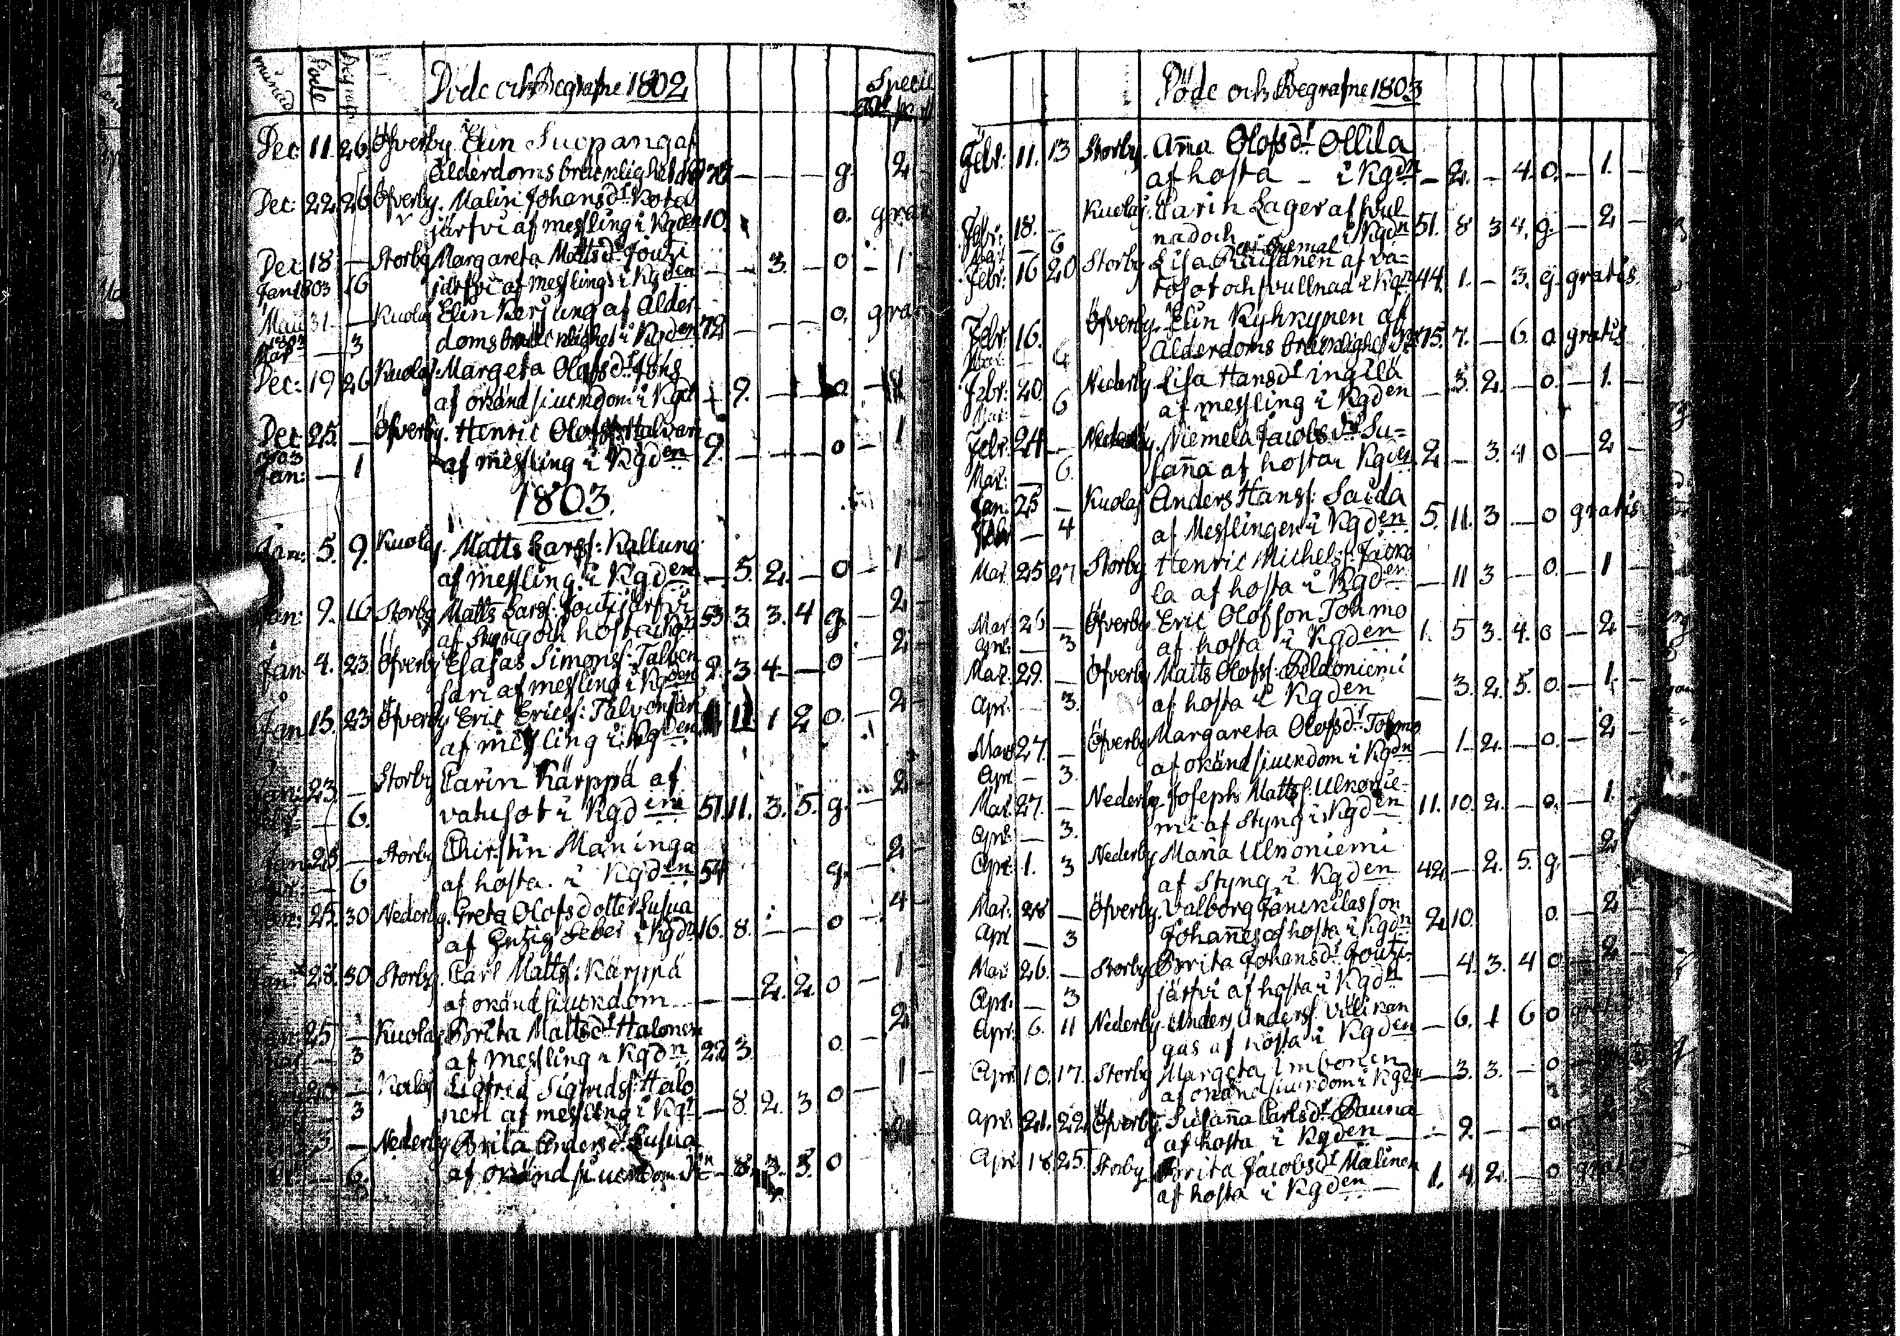 Månad Döde Begrafn Döde och Begrafne 1802 Specie
Dec: 11. 26. Öfverby. Elin Suopanga af
ålderdoms bräcklighet 78 — — — g. 2. —
Dec: 22. 26 Öfverby. Malin Johansdr Kota
järfvi af messling i Kgden 10. o. gratis
Dec 18. — Storby Margareta Mattsdr Jouzi
Jan 1803 16 järfvi af messling i Kgden — — 3. — o — 1
31. — Kuolaj. Elin Kerfling af Ålder
— 3 doms bräcklighet i Kgden 72 — — — o. gratis
Dec: 19 26 Kuolaj. Margeta Olofsdr Jons
af okänd siukdom i Kgd — 9. — — o.
Dec 25. — Öfverby. Henric Olofss Halvari
Jan: — 1 af messling i Kgden 9. — — — o — 1
1803.
Jan: 5. 9. Kuolaj. Matts Larss: Kallung
af messling i Kgden — 5. 2. — o — 1
Jan: 9. 16 Storby Matts Larss. Joutzijärfvi
af styng och hosta i Kgdn 53. 3. 3. 4 g. — 2.
Jan 4. 23 Öfverby Esaias Simonss: Talven
sari af messling i Kgden 2. 3 4. — o — 2
Jan 15. 23 Öfverby Eric Ericss: Talvensari
af messling i Kgden 11 1 2 o. — 2
Jan: 23. — Storby Carin Kärppä af
— 6. vatusot i Kgden 51. 11. 3. 5. g. — 2
Jan 28. — Storby Chirstin Maninga
— 6 af hosta. i Kgden 54 g. — 2.
Jan: 25. 30 Nederby. Greta Olofsdotter Lusua
af hitzig feber i Kgdn 16. 8. — — o — 4
Jan: 28. 30 Storby. Carl Mattss: Kärppä
af okänd siukdom — — 2. 2. o — 1
Jan: 25 — Kuolaj Brita Mattsdr Halonen
— 3 af messling i Kgdn 22 3. o. — 2
— Kuolaj Sigfrid Sigfridss: Halo
3 nen af messling i Kgn — 8. 2. 3 o — 1
3 — Nederby Brita Andersdr Lusua
— 6. af okänd siukdom — 8. 3. 3. o
Döde och Begrafne 1803
Febr: 11. 13 Storby. Anna Olofsdr Ollila
af hosta — i Kgdn — 2. — 4. o. — 1. —
Febr: 18. — Kuolaj. Carin Lager af svul
— 6 nad och i Kgdn 51. 8 3 4. g. — 2 —
Febr: 16 20 Storby Lisa Räisänen af va-
tusot och svullnad i Kgdn 44. 1. — 3. g. gratis.
Febr 16. Öfverby. Elin Kyhkynen af
4 Ålderdoms bräcklighet 75. 7. — 6. o gratis
Febr: 20. Nederby Lisa Hansdr Ingilä
6 af messling i Kgden — 3. 2. — o. — 1. —
Febr: 24. — Nederby. Niemelä Jacobsdr Su-
Mar. — 6. sanna af hosta i Kgden 2. — 3. 4 o — 2 —
Jan. 25 — Kuolaj Anders Hanss. Saida
Febr — 4 af Messlingen i Kgden 5. 11. 3 — o gratis
Mar. 25 27 Storby Henric Michelss: Jäcko
la af hosta i Kgden — 11 3 — o. — 1 —
Mar. 26 — Öfverby. Eric Olofson Tohmo
Apr: — 3 af hosta i Kgden 1. 5 3. 4. o — 2 —
Mar. 29. — Öfverby Matts Olofss: Peldoniemi
Apr. — 3. af hosta i Kgden — 3. 2. 5. o. — 1. —
Mar 27. — Öfverby Margareta Olofsdr Tohmo
Apr — 3. af okänd siukdom i Kgdn — 1. 2. — o. — 2 —
Mar. 27. — Nederby. Joseph Mattss. Ulkonie-
Apr. — 3. mi af styng i Kgden 11. 10. 2. — o. — 1. —
Apr: 1. 3 Nederby Maria Ulkoniemi
af styng i Kgden 42 — 2. 5 g. — 2.
Mar. 28 — Öfverby. Valborg Janckilas son
Apr — 3 Johannes af hosta i Kgdn 2. 10. o. — 2 —
Mar. 26. — Storby Brita Johansdr Joutzi
Apr: — 3 järfvi af hosta i Kgdn — 4. 3. 4 o — 2 —
Apr: 6. 11 Nederby. Anders Anderss. Villikan
gas af hosta i Kgden — 6. 1 6 o gratis
Apr: 10. 17. Storby Margeta Imbonen
af okänd siukdom i Kgdn — 3. 3. — o
Apr: 21. 22 Öfverby. Susanna Carlsdr Pauna
af hosta i Kgden — — 9. — — o
Apr 18 25. Storby Brita Jacobsdr Malinen
af hosta i Kgden — 1. 4. 2. — o gratis